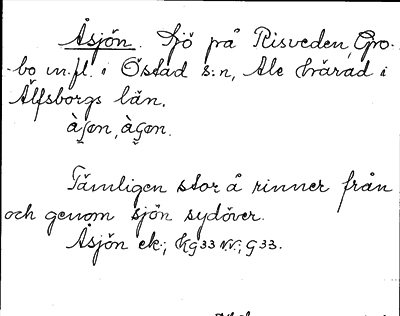 Åsjön. Sjö på Risveden, Gro-
-bo m.fl. i Östad s:n, Ale härad i
Älfsborgs län.
Tämligen stor å rinner från
och genom sjön sydöver.
Åsjön ek.; Kg33 NV.; G33.